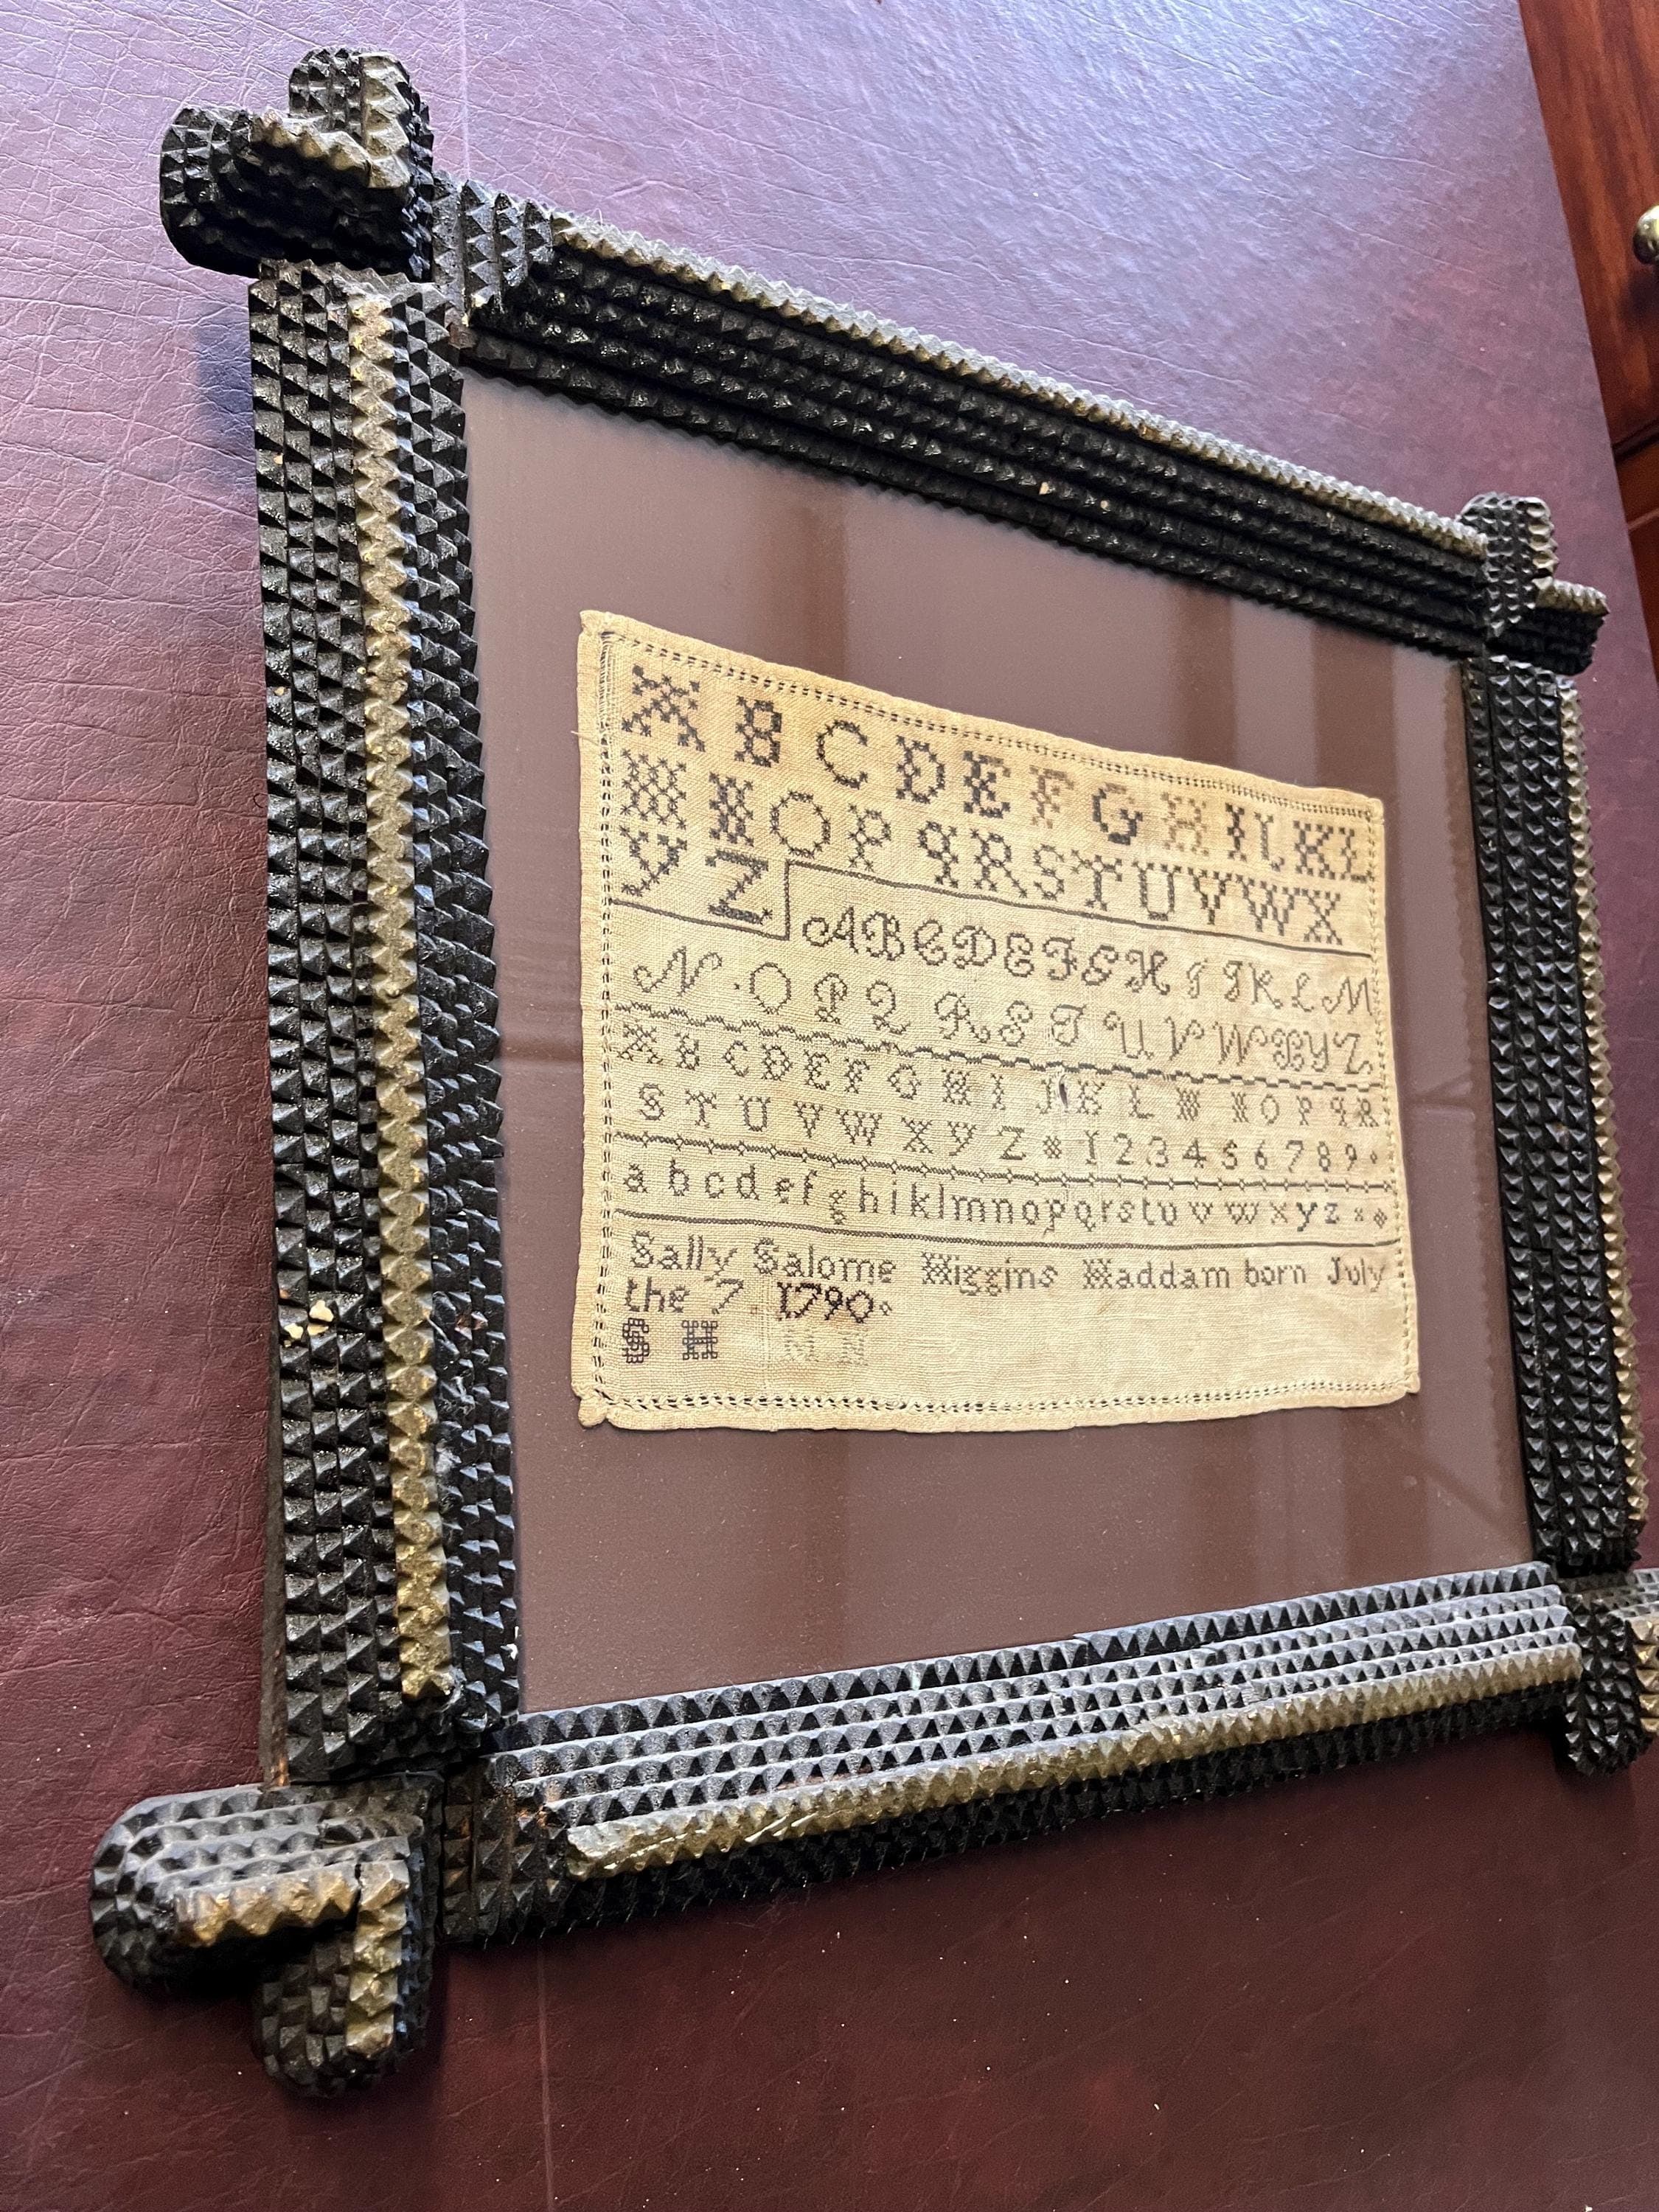 A B C D E F G H I J K L
M N O P Q R S T U V W X
Y Z
A B C D E F G H I J K L M
N . O P Q R S T U V W X Y Z
A B C D E F G H I J K L M N O P Q R
S T U V W X Y Z 1 2 3 4 5 6 7 8 9
a b c d e f g h i k l m n o p q r s t u v w x y z
Sally Salome Higgins Haddam born July
the 7 1790
S H M N